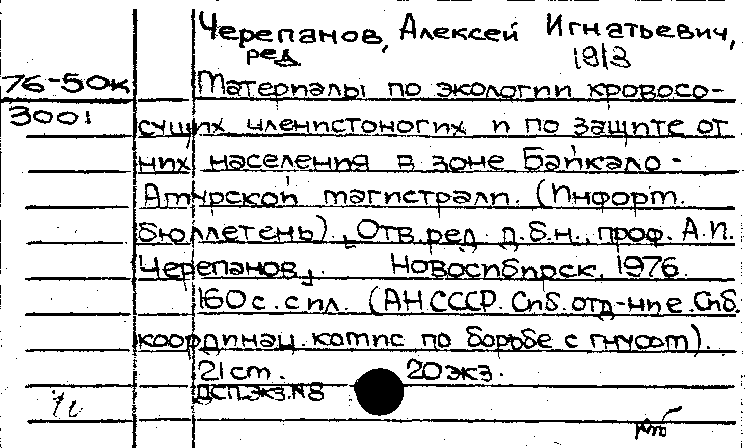 Черепанов, Алексей Игнатьевич,
ред. 1913
76-50к Материалы по экологии кровосо-
3001 сущих членистоногих и по защите от
них населения в зоне Байкало-
Амурской магистрали. (Информ.
бюллетень). [Отв. ред. д.б.н., проф. А.И.
Черепанов]. Новосибирск, 1976.
160 с. с ил. (АН СССР. Сиб. отд-ние. Сиб.
координац. комис по борьбе с гнусом).
21 cm. 20 экз.
ДСП.экз.N8